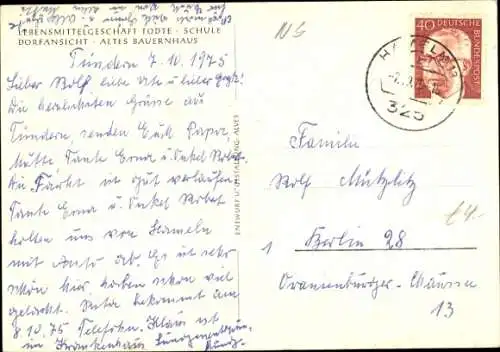 LEBENSMITTELGESCHÄFT TODTE · SCHULE
DORFANSICHT · ALTES BAUERNHAUS
Tündern 7.10.1975
Lieber Rolf, liebe Ute und lieber
Die herzlichsten Grüsse aus
Tündern senden Euch Papa,
Mutti Tante Erna u. Onkel Robert
Die Fahrt ist gut verlaufen
Tante Erna u. Onkel Robert
holten uns von Hameln
mit Auto ab. Es ist sehr
schön hier, haben schon viel
gelacht. bekommt am
8.10.75 Telefon. Klaus ist
im Krankenhaus
ENTWURF U.
NG
HAMELN
325
40 DEUTSCHE BUNDESPOST
Familie
Rolf Mützlitz
1 Berlin 28
Oranienburger-Chaussee
13